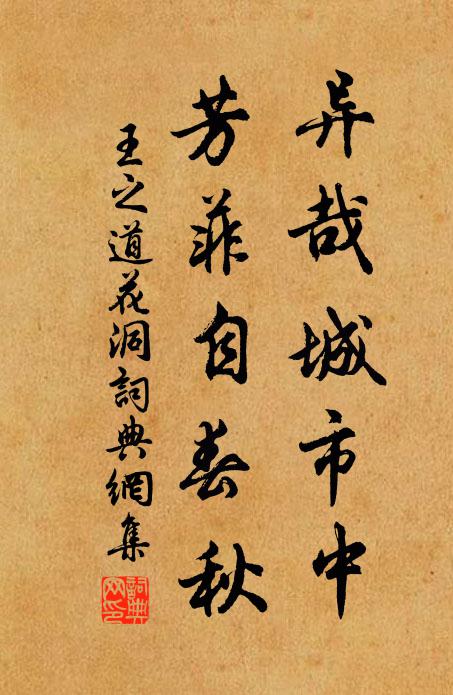 异哉城市中
芳菲自春秋
王之道花洞詞典網集
詞典网印